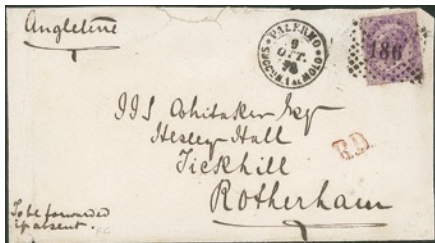 Angleterre
PALERMO
9
OTT.
SUCCURS. 1 AL MOLO
186
IIS Whitaker Esq
Hesley Hall
Tickhill
Rotherham
P.D.
To be forwarded
if absent.